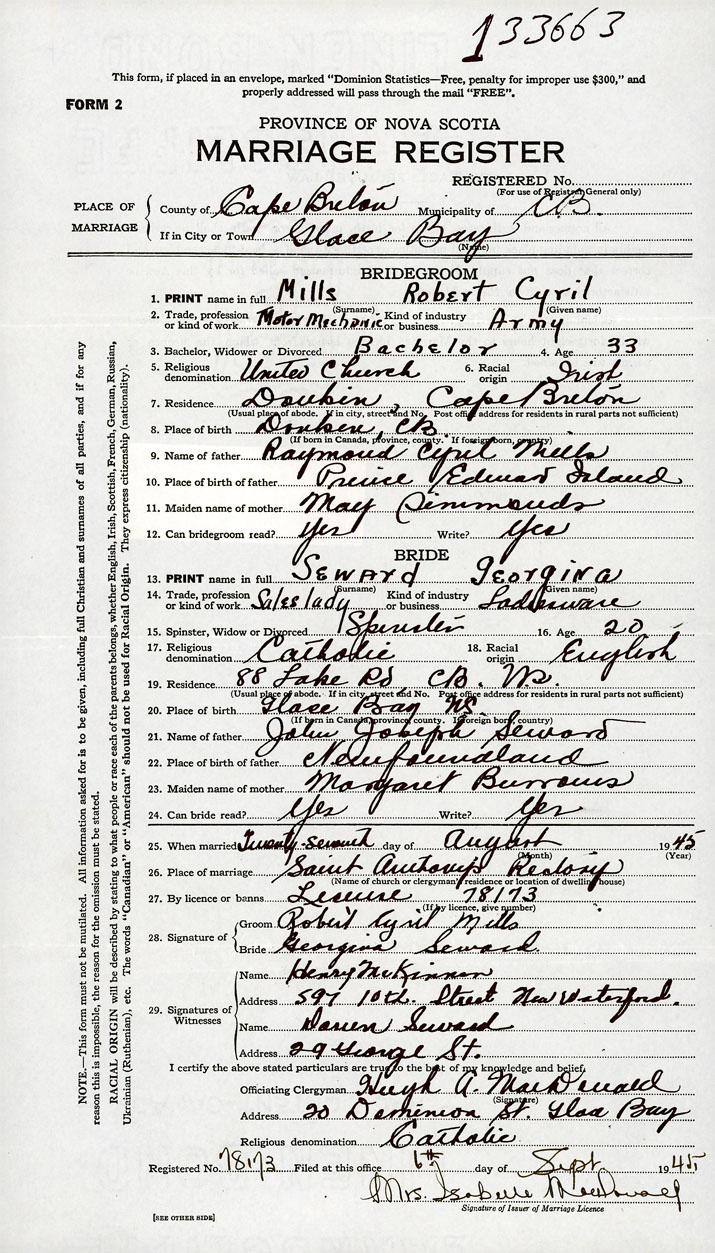 133663
This form, if placed in an envelope, marked "Dominion Statistics—Free, penalty for improper use $300," and
properly addressed will pass through the mail "FREE".
FORM 2
PROVINCE OF NOVA SCOTIA
MARRIAGE REGISTER
REGISTERED No.
(For use of Registrar General only)
PLACE OF MARRIAGE
County of Cape Breton Municipality of C.B.
If in City or Town Glace Bay
(Name)
BRIDEGROOM
1. PRINT name in full Mills Robert Cyril
(Surname) (Given name)
2. Trade, profession or kind of work Motor Mechanic Kind of industry or business Army
3. Bachelor, Widower or Divorced Bachelor 4. Age 33
5. Religious denomination United Church 6. Racial origin Irish
7. Residence Donkin, Cape Breton
(Usual place of abode. If in city, street and No. Post office address for residents in rural parts not sufficient)
8. Place of birth Donkin, CB.
(If born in Canada, province, county. If foreign born, country)
9. Name of father Raymond Cyril Mills
10. Place of birth of father Prince Edward Island
11. Maiden name of mother May Simmonds
12. Can bridegroom read? Yes Write? Yes
BRIDE
13. PRINT name in full Seward Georgina
(Surname) (Given name)
14. Trade, profession or kind of work Saleslady Kind of industry or business Ladieswear
15. Spinster, Widow or Divorced Spinster 16. Age 20
17. Religious denomination Catholic 18. Racial origin English
19. Residence 88 Lake Rd, CB. N.S.
(Usual place of abode. If in city, street and No. Post office address for residents in rural parts not sufficient)
20. Place of birth Glace Bay NS.
(If born in Canada, province, county. If foreign born, country)
21. Name of father John Joseph Seward
22. Place of birth of father Newfoundland
23. Maiden name of mother Margaret Burrows
24. Can bride read? Yes Write? Yes
25. When married Twenty-seventh day of August 1945
(Month) (Year)
26. Place of marriage Saint Anthonys Rectory
(Name of church or clergyman's residence or location of dwelling house)
27. By licence or banns License 78173
(If by licence, give number)
28. Signature of
Groom Robert Cyril Mills
Bride Georgina Seward.
29. Signatures of Witnesses
Name Henry McKinnon
Address 597 10th. Street New Waterford.
Name Seward
Address 29 George St.
I certify the above stated particulars are true to the best of my knowledge and belief.
Officiating Clergyman Hugh A. MacDonald
(Signature)
Address 20 Dominion St. Glace Bay
Religious denomination Catholic
Registered No. 78173 Filed at this office 6th day of Sept 1945
Mrs. Isabelle MacDonald
Signature of Issuer of Marriage Licence
[SEE OTHER SIDE]
NOTE.—This form must not be mutilated. All information asked for is to be given, including full Christian and surnames of all parties, and if for any
reason this is impossible, the reason for the omission must be stated.
RACIAL ORIGIN will be described by stating to what people or race each of the parents belongs, whether English, Irish, Scottish, French, German, Russian,
Ukrainian (Ruthenian), etc. The words "Canadian" or "American" should not be used for Racial Origin. They express citizenship (nationality).